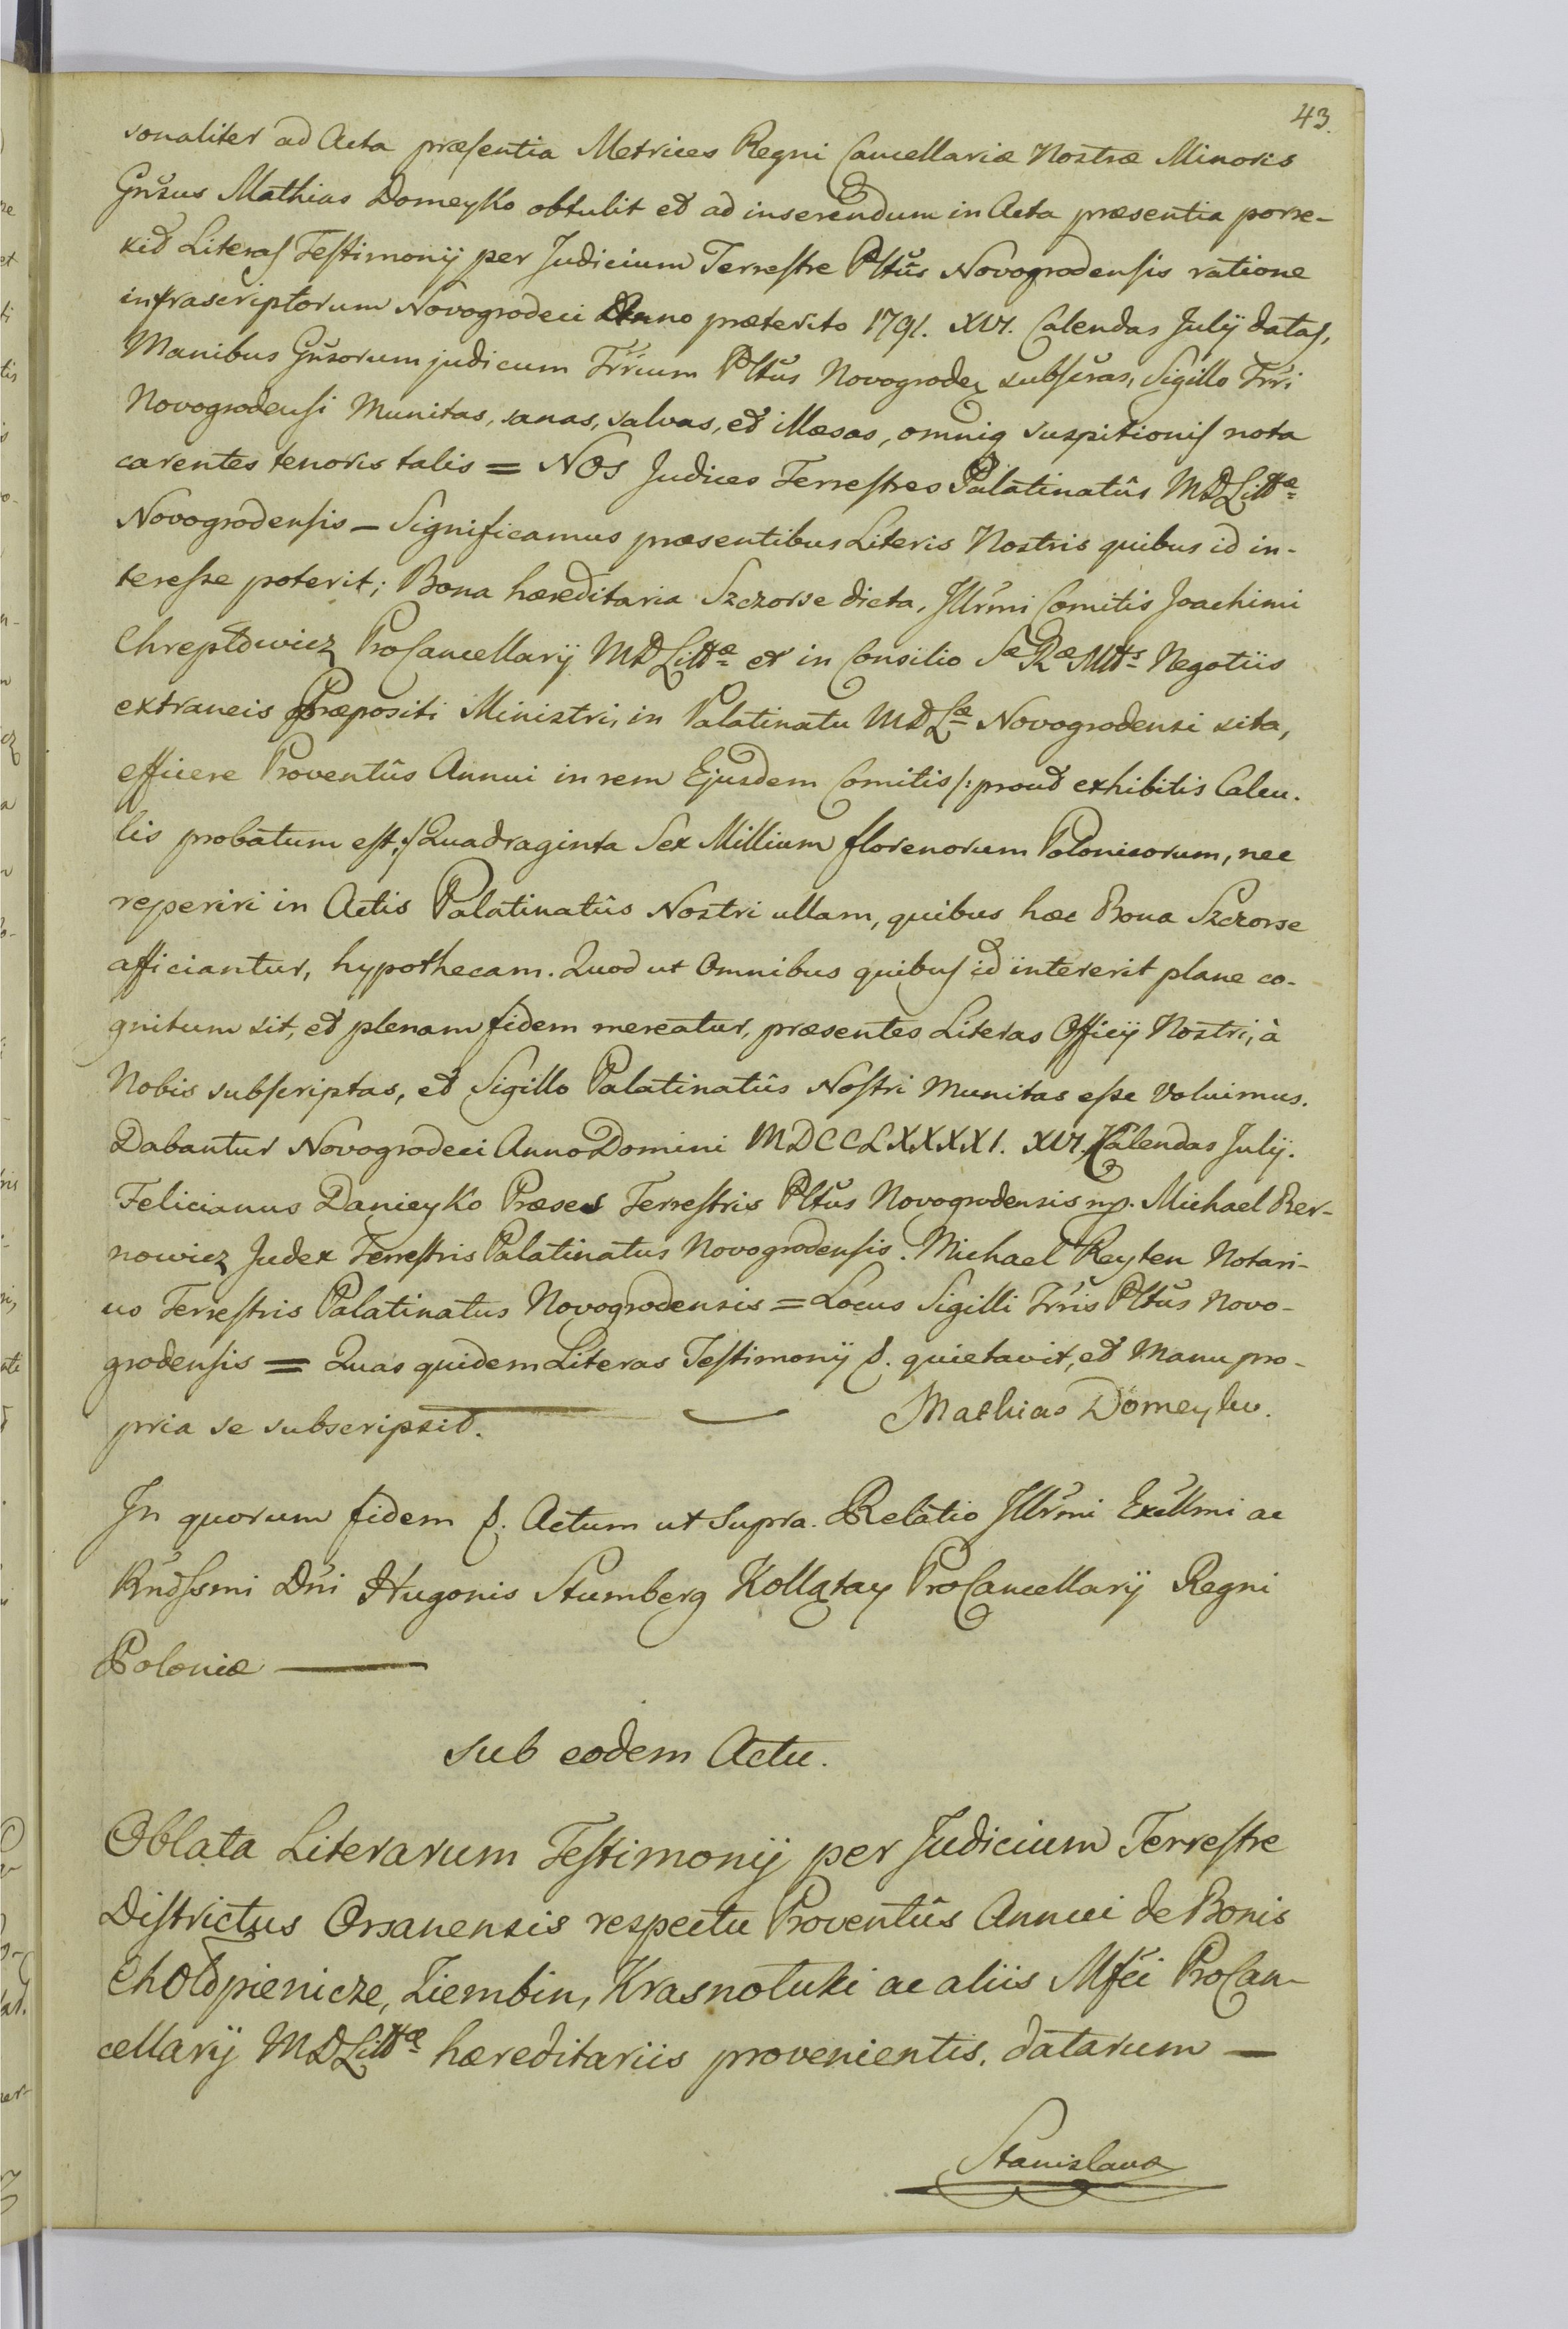 43.
sonaliter ad Acta præsentia Metrices Regni Cancellariæ Nostræ Minoris
Gñsus Mathias Domeyko obtulit et ad inserendum in Acta præsentia porre-
xit Literas Testimonij per Judicium Terrestre Pltũs Novogrodensis ratione
infrascriptorum Novogrodeci Anno præterito 1791. XVI. Calendas Julij datas,
Manibus Gñsorum judicum Trrium Pltũs Novogroden subscras, Sigillo Trri
Novogrodensi Munitas, sanas, salvas, et illæsas, omniq suspitionis nota
carentes tenoris talis = NOS Judices Terrestres Palatinatûs MDLittæ
Novogrodensis – Significamus præsentibus Literis Nostris quibus id in-
teresse poterit; Bona hæreditaria Szczorse dicta, Jllrmi Comitis Joachimi
Chreptowicz ProCancellarij MDLittæ et in Consilio SæRæMttis Negotiis
extraneis Præpositi Ministri, in Palatinatu MDLæ Novogrodensi sita,
efficere Proventûs Annui in rem Ejusdem Comitis /: prout exhibitis Calcu-
lis probatum est :/ Quadraginta Sex Millium florenorum Polonicorum, nec
reperiri in Actis Palatinatûs Nostri ullam, quibus hæc Bona Szczorse
afficiantur, hypothecam. Quod ut Omnibus quibus id intererit plane co-
gnitum sit, et plenam fidem mereatur, præsentes Literas Officij Nostri, à
Nobis subscriptas, et Sigillo Palatinatûs Nostri Munitas esse Voluimus.
Dabantur Novogrodeci Anno Domini MDCCLXXXXI. XVI, Kalendas Julij.
Felicianus Danieyko Præses Terrestris Pltũs Novogrodensis mp. Michael Ber-
nowicz Judex Terrestris Palatinatus Novogrodensis. Michael Reyten Notari-
us Terrestris Palatinatus Novogrodensis = Locus Sigilli Trris Pltũs Novo-
grodensis = Quas quidem Literas Testimonij &. quietavit, et Manu pro-
pria se subscripsit. Mathias Domeyko.
In quorum fidem &. Actum ut Supra. Relatio Jllrmi Excllmi ac
Rndssmi Dni Hugonis Stumberg Kollątay ProCancellarij Regni
Poloniæ —
Sub eodem Actu.
Oblata Literarum Testimonij per Judicium Terrestre
Districtus Orsanensis respectu Proventûs Annui de Bonis
Chołopienicze, Ziembin, Krasnołuki ac aliis Mfci ProCan-
cellarij MDLittæ hæreditariis provenientis, datarum —
Stanislaus